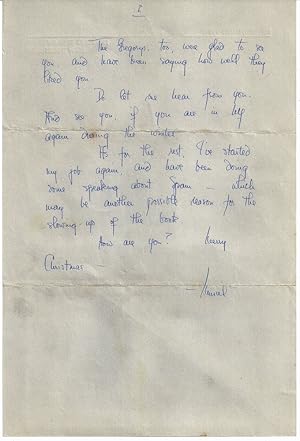 The Gregorys, too, were glad to see
you and have been saying how well they
liked you.
Do let me hear from you.
And see you, if you are in
again during the winter.
As for the rest, I've started
my job again, and have been doing
some speaking about Spain – which
may be another possible reason for the
slowing-up of the book.
How are you? Merry
Christmas –